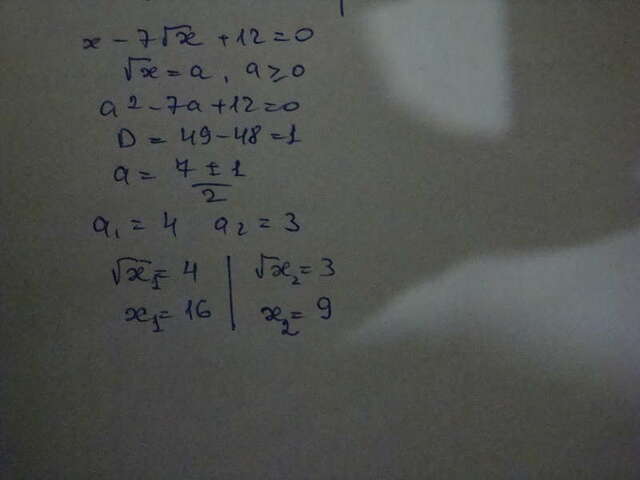 x - 7√x + 12 = 0
√x = a, a ≥ 0
a² - 7a + 12 = 0
D = 49 - 48 = 1
a = (7 ± 1)/2
a₁ = 4 a₂ = 3
√x₁ = 4 | √x₂ = 3
x₁ = 16 | x₂ = 9